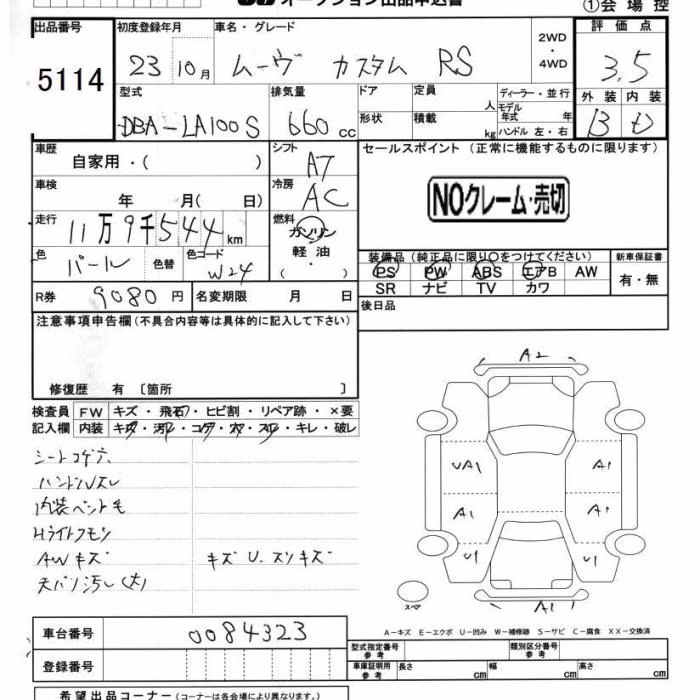 オークション出品申込書 ①会場控
出品番号 初度登録年月 車名・グレード 2WD・4WD 評価点
5114 23 10月 ムーヴ カスタム RS 3.5
型式 排気量 ドア 定員 人 ディーラー・並行 外装 内装
DBA-LA100S 660cc 形状 積載 kg モデル年式 年 ハンドル 左・右 B D
車歴 自家用・( ) シフト AT セールスポイント (正常に機能するものに限ります)
車検 年 月(日) 冷房 AC
NOクレーム・売切
走行 11万9千544km 燃料 ガソリン 軽油 ・( )
色 パール 色替 色コード W24 装備品 (純正品に限り○をつけてください) 新車保証書
PS PW ABS エアB AW 有・無
SR ナビ TV カワ
R券 9080円 名変期限 月 日 後日品
注意事項申告欄 (不具合内容等は具体的に記入して下さい)
修復歴 有 〔箇所 〕
検査員 FW キズ・飛石・ヒビ割・リペア跡・×要
記入欄 内装 キズ・汚レ・コゲ・穴・スレ・キレ・破レ
シートコゲ穴
ハンドルスレ
内装ペット毛
Hライトクモリ
AWキズ キズ U.スリキズ
天バリ汚レ(大)
A2
UA1 A1
A1 A1
U1 U1
A1
スペア
A-キズ E-エクボ U-凹み W-補修跡 S-サビ C-腐食 XX-交換済
車台番号 0084323
型式指定番号 参考 類別区分番号 参考
登録番号 車庫証明用 参考 長さ cm 幅 cm 高さ cm
希望出品コーナー (コーナーは各会場により異なります。)